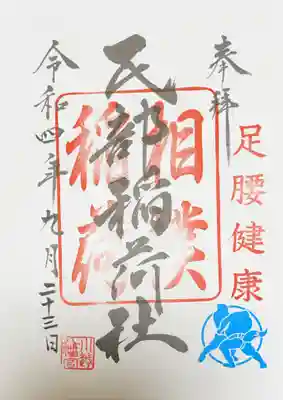 奉拝
足腰健康
民部稲荷社
相撲
稲荷
令和四年九月二十三日